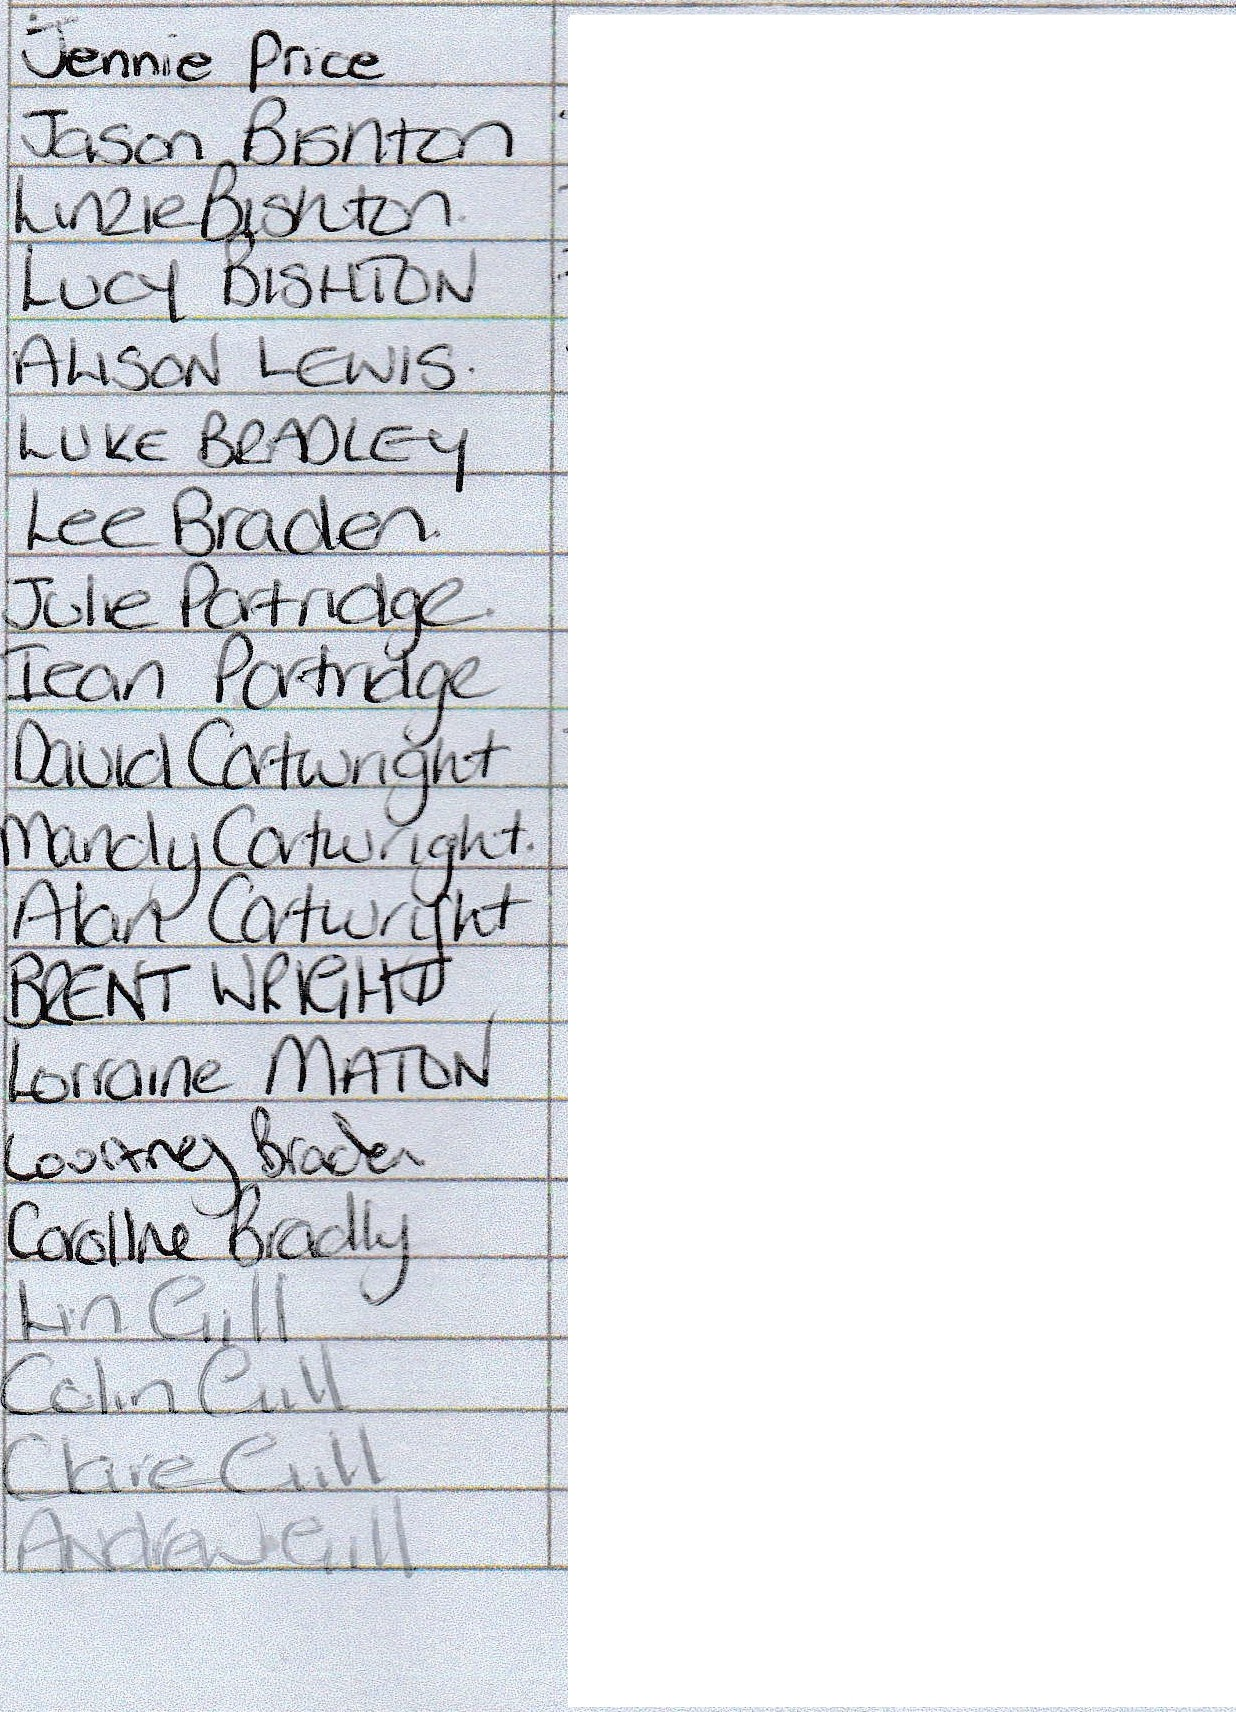 Jennie Price
Jason Bishton
Linzie Bishton.
LUCY BISHTON
ALISON LEWIS.
LUKE BRADLEY
Lee Braden.
Julie Partridge.
Iean Partridge
David Cartwright
Mandy Cartwright.
Alan Cartwright
BRENT WRIGHT
Lorraine MATON
Courtney Braden
Caroline Bradly
Lin Gill
Colin Gill
Claire Gill
Andrew Gill